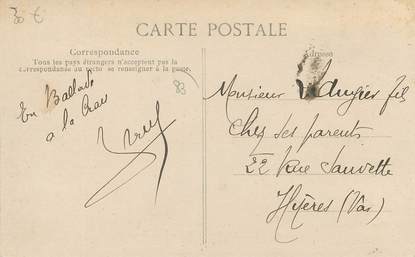 30 €
CARTE POSTALE
Correspondance
Tous les pays étrangers n'acceptent pas la
correspondance au recto se renseigner à la poste.
Adresse
83
En Ballade
a la Crau
Monsieur fils
Chez ses parents
22 Rue
Hyères (Var)